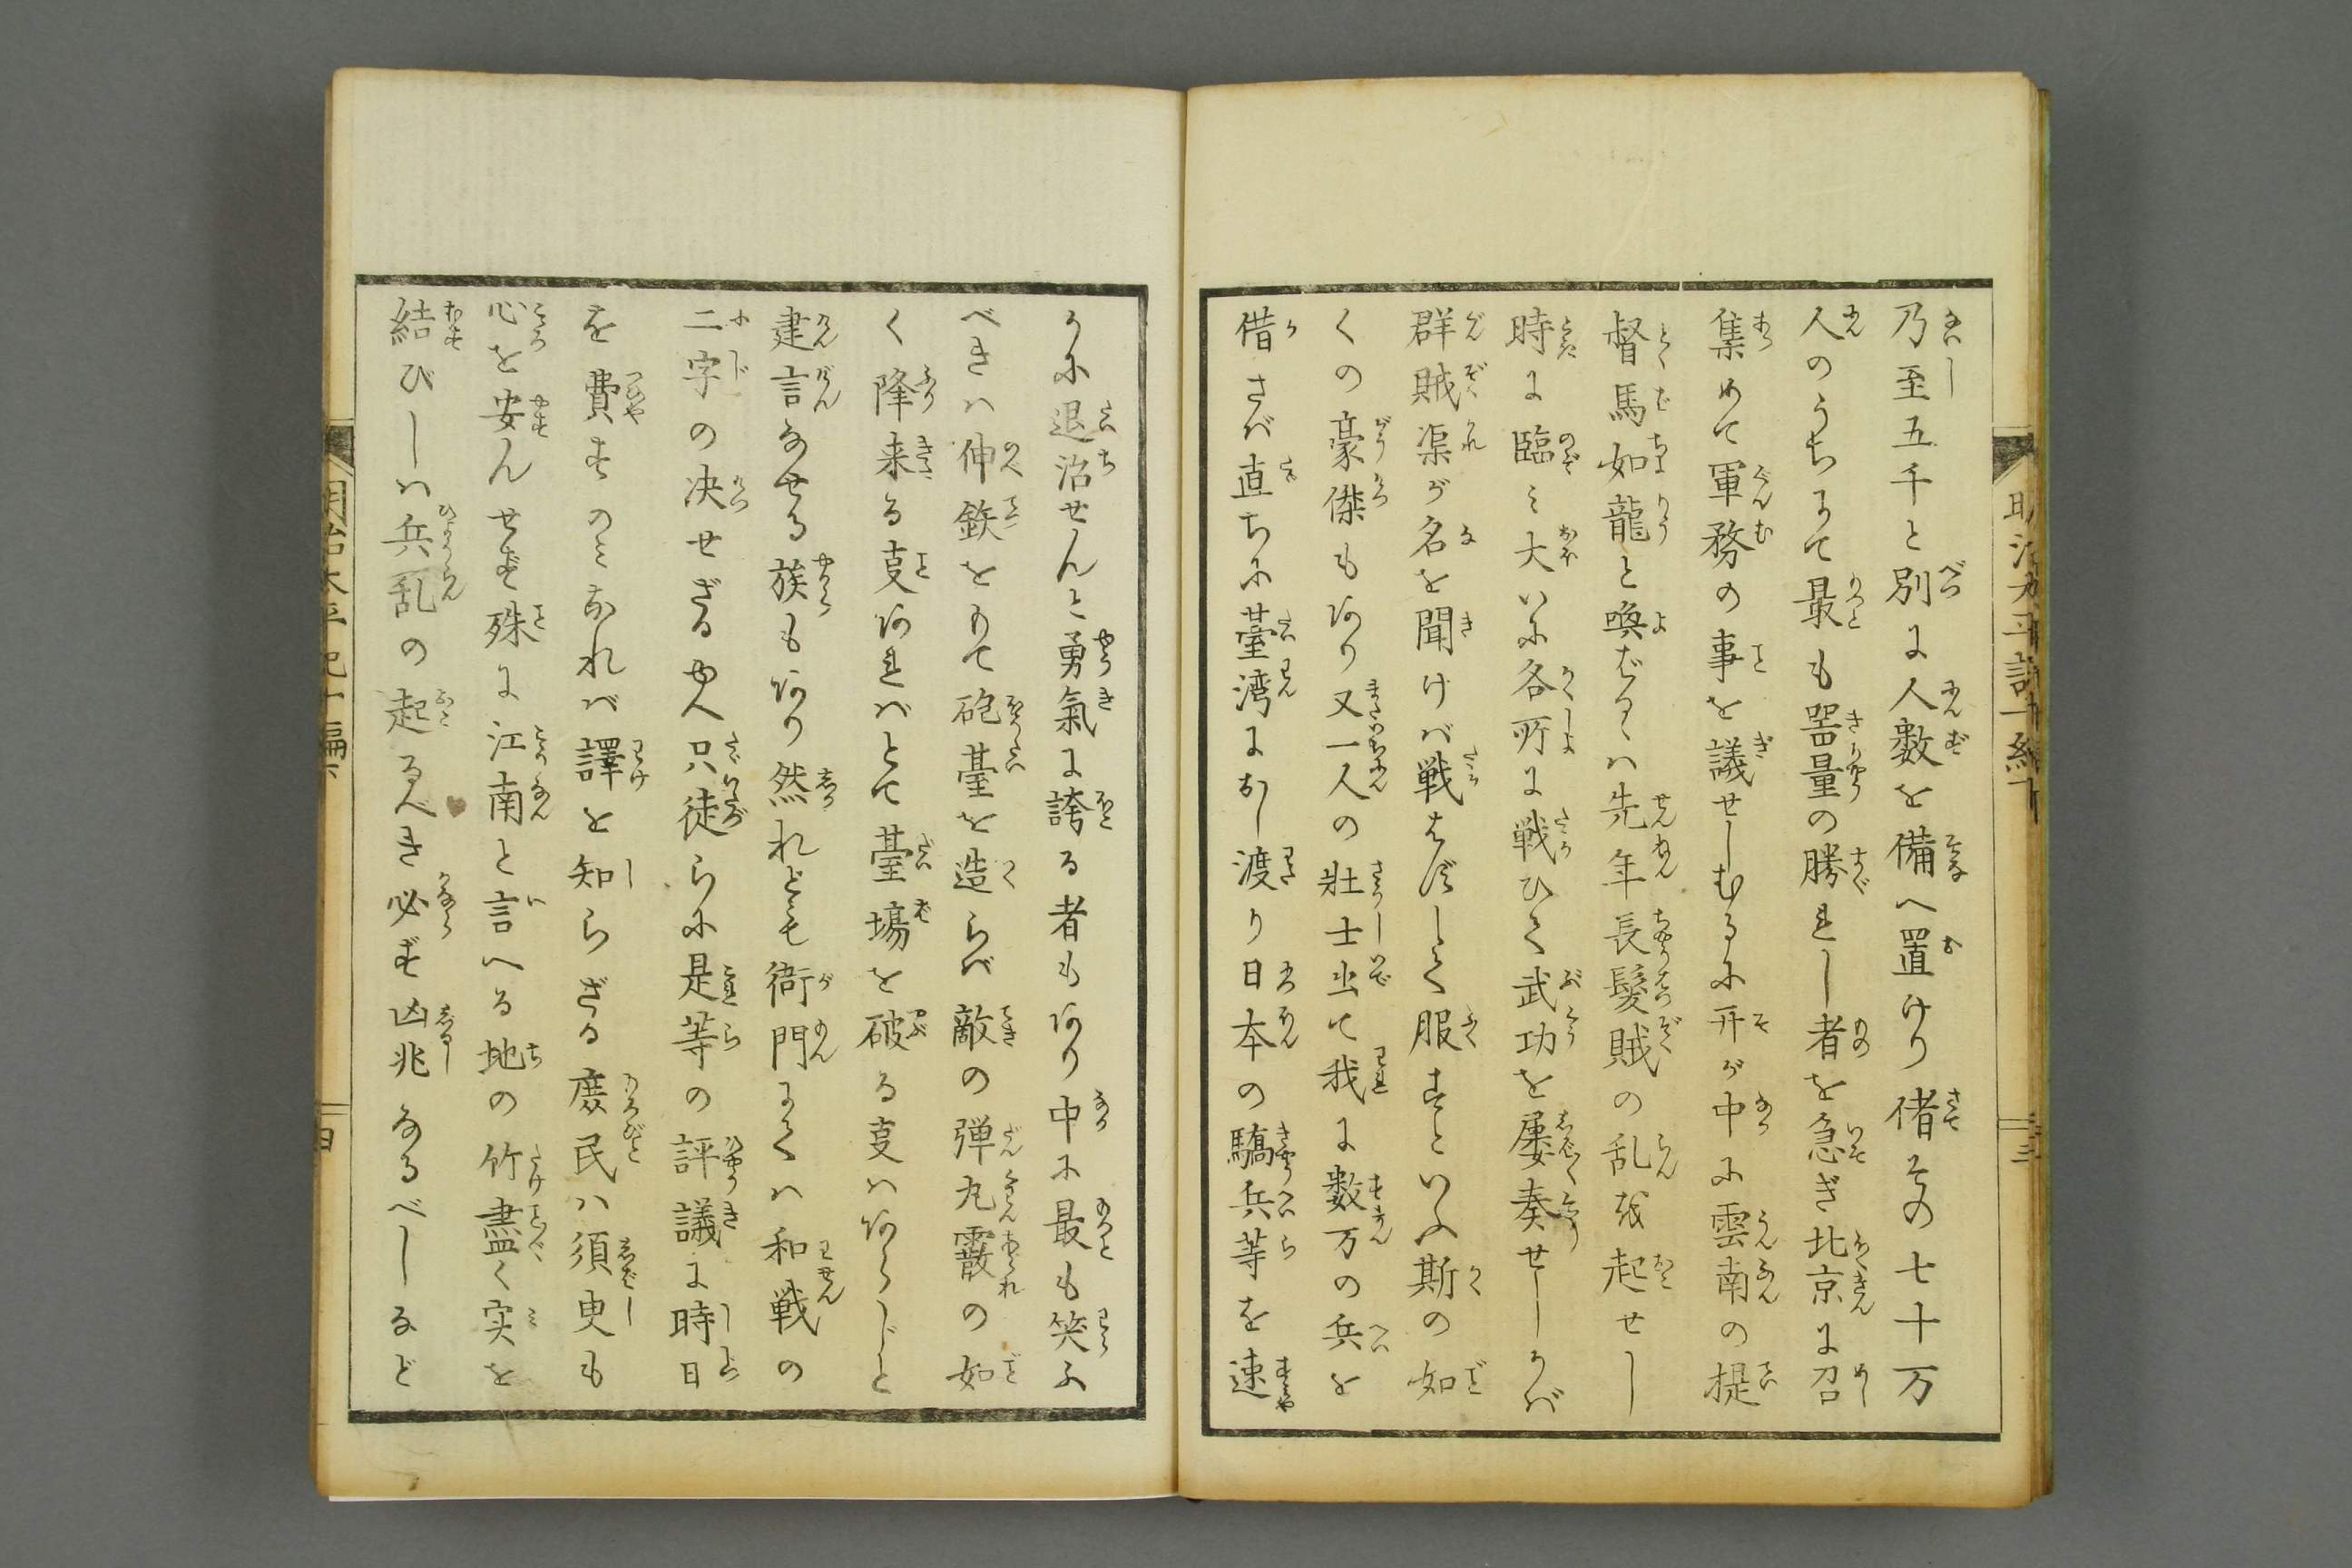 乃至五千と別に人数を備へ置けり偖その七十万
人のうちにて最も器量の勝れし者を急ぎ北京に召
集めて軍務の事を議せしむるに开が中に雲南の提
督馬如龍と喚ばるゝは先年長髪賊の乱を起せし
時に臨み大いに各所に戦ひて武功を屡奏せしかば
群賊渠が名を聞けば戦はずして服すといふ斯の如
くの豪傑もあり又一人の壮士出て我に数万の兵を
借さば直ちに臺湾におし渡り日本の驕兵等を速
かに退治せんと勇氣に誇る者もあり中に最も笑ふ
べきは伸鉄をもて砲臺を造らべ敵の弾丸霰の如
く降来る叓あればとて臺場を破る叓はあらじと
建言なせる族もあり然れども衙門にては和戦の
二字の决せざるゆゑ只徒らに是等の評議に時日
を費すのみなれば譯を知らざる庶民は須臾も
心を安んせず殊に江南と言へる地の竹盡く実を
結びしは兵乱の起るべき必ず凶兆なるべしなど
明治太平記十一編下
三
明治太平記十一編下
四